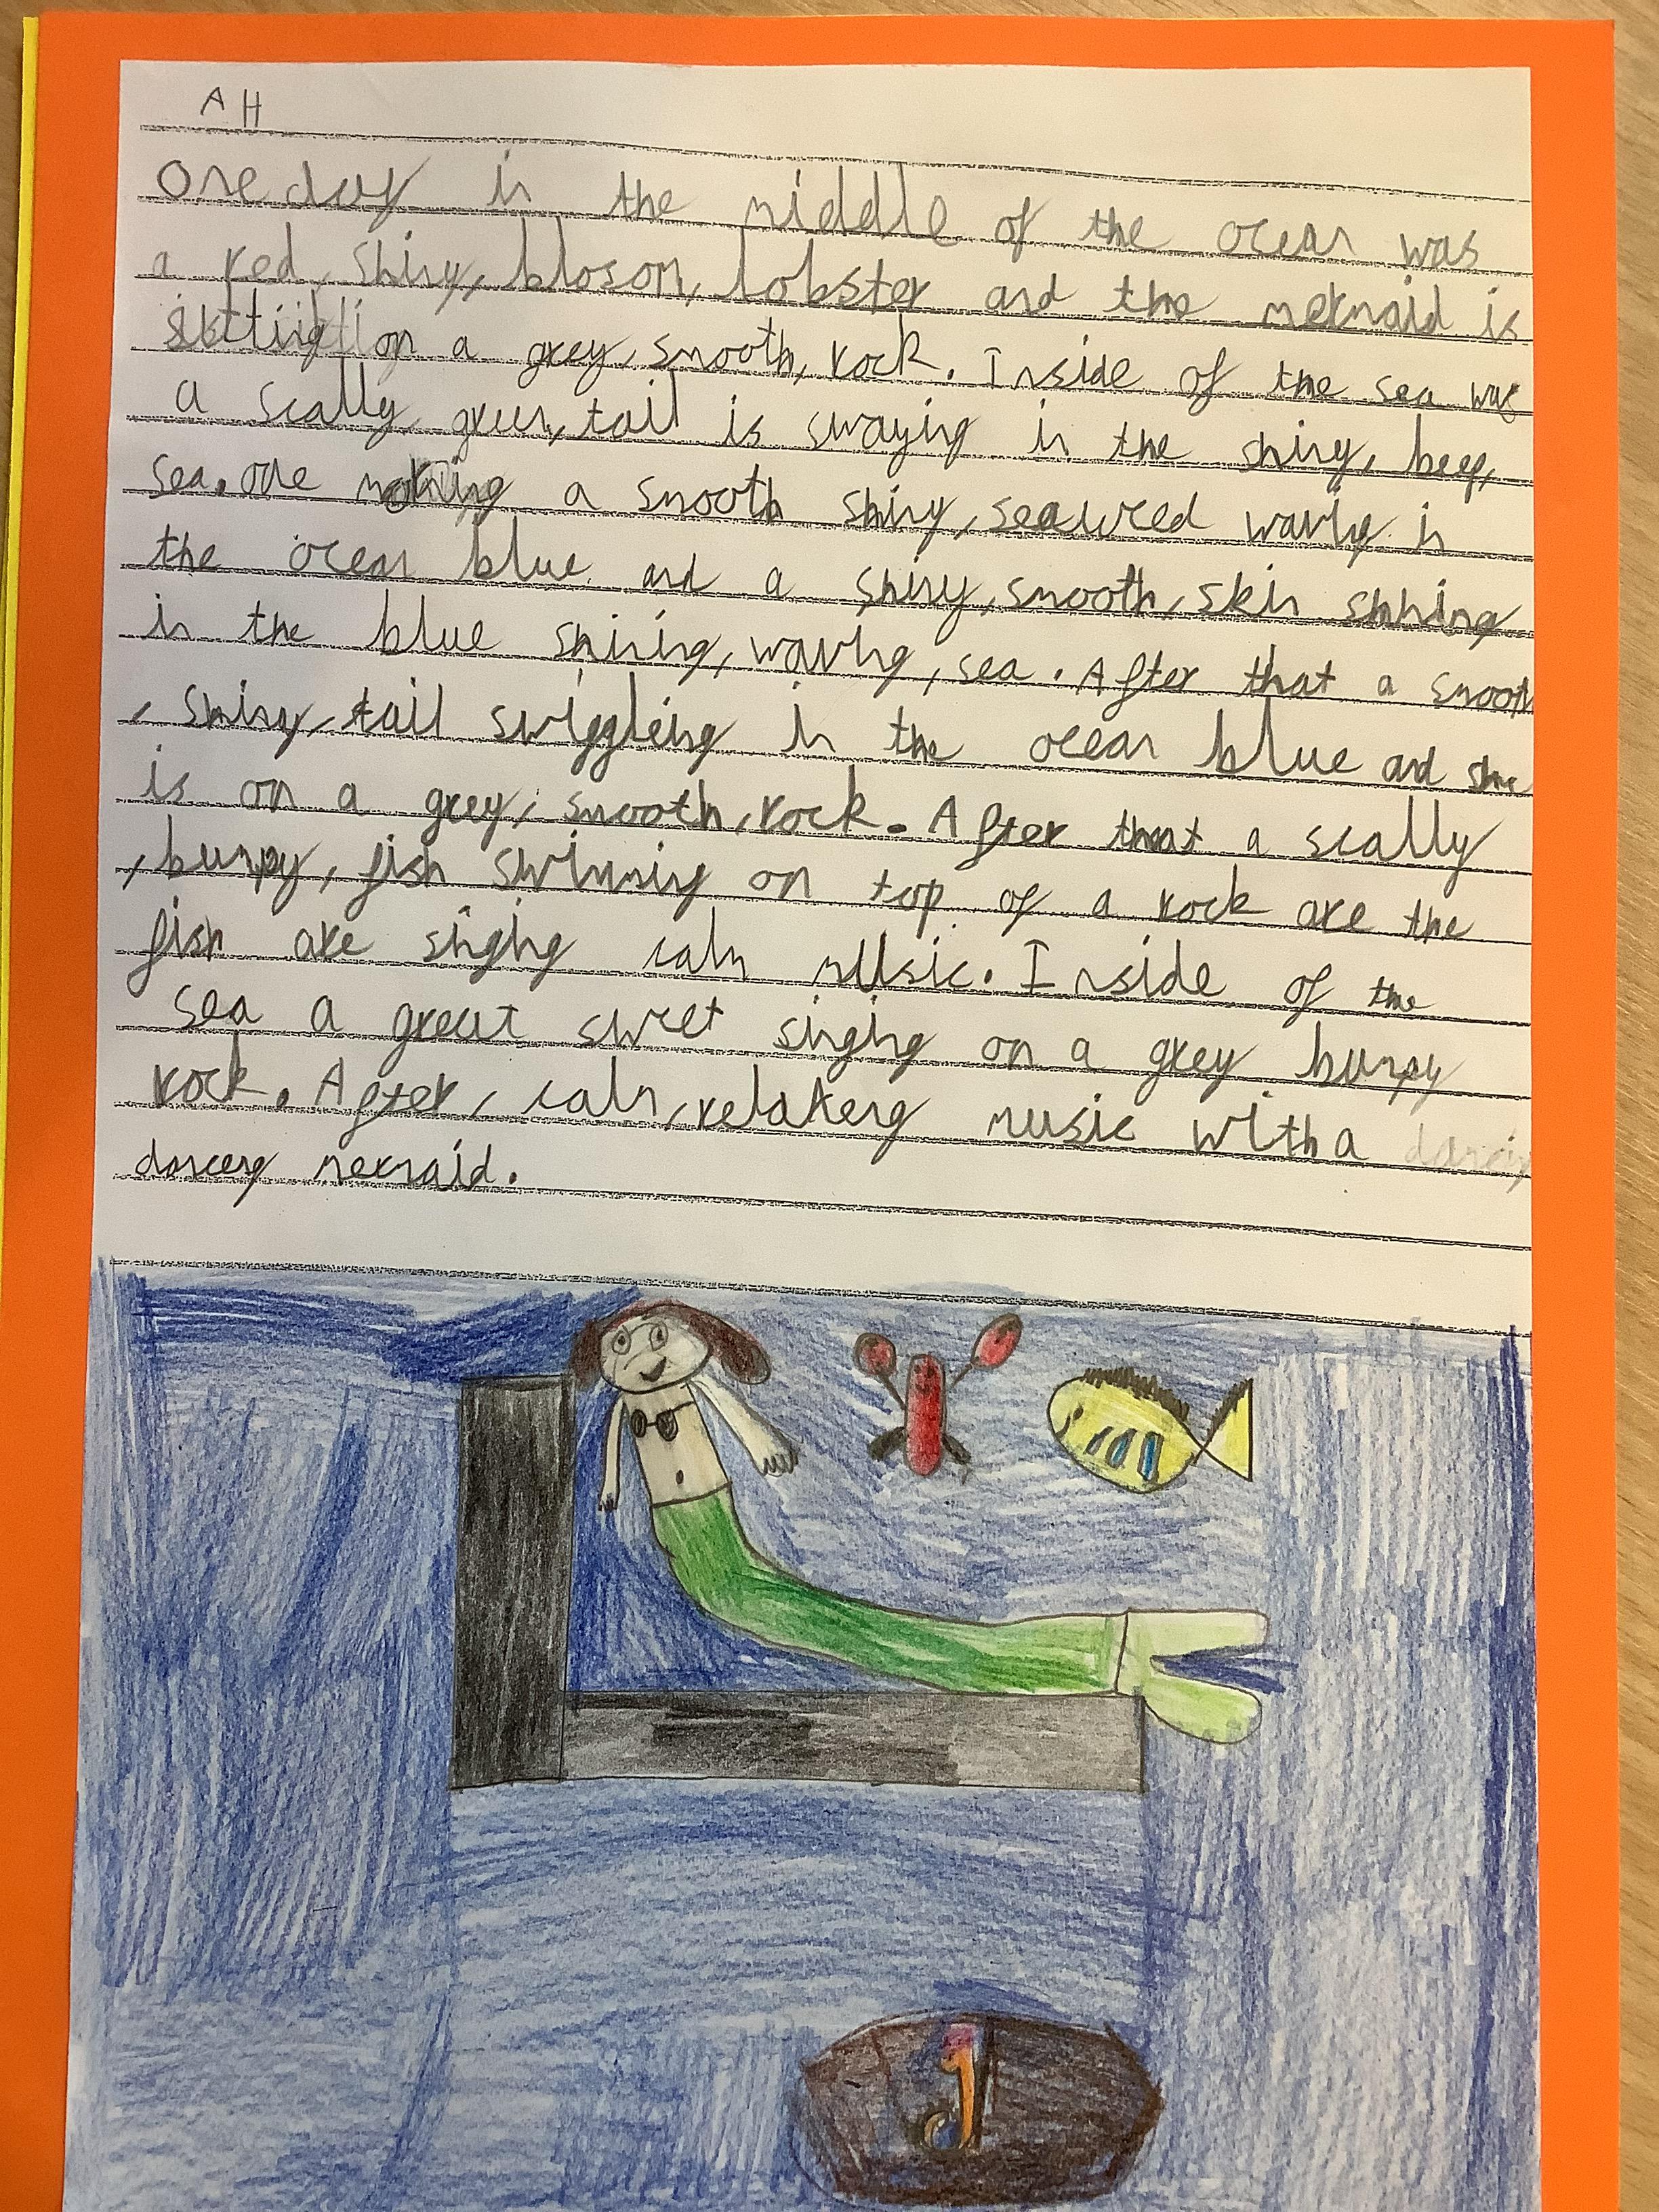 A H
One day in the middle of the ocean was
a red, shiny, bloson, lobster and the mermaid is
sitting on a grey, smooth, rock. Inside of the sea was
a scally, green, tail is swaying in the shiny, beep,
sea. one morning a smooth shiny, seaweed waving in
the ocean blue and a shiny, smooth, skin shining
in the blue shining, waving, sea. After that a smooth
, shiny, tail swiggleing in the ocean blue and she
is on a grey, smooth, rock. After that a scally
, bumpy, fish swimming on top of a rock are the
fish are singing calm music. Inside of the
sea a great sweet singing on a grey bumpy
rock. After, calm, relaxeng music with a
danceng mermaid.